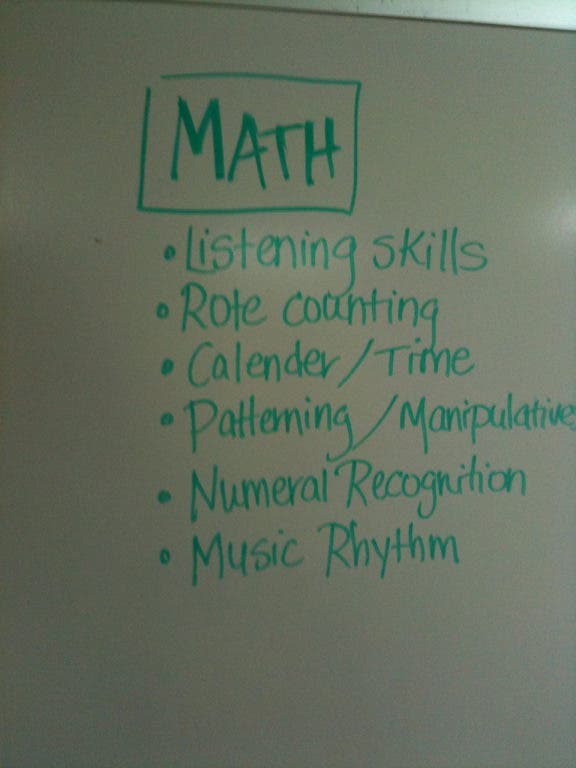 MATH
• Listening skills
• Rote counting
• Calender/Time
• Patterning/Manipulatives
• Numeral Recognition
• Music Rhythm